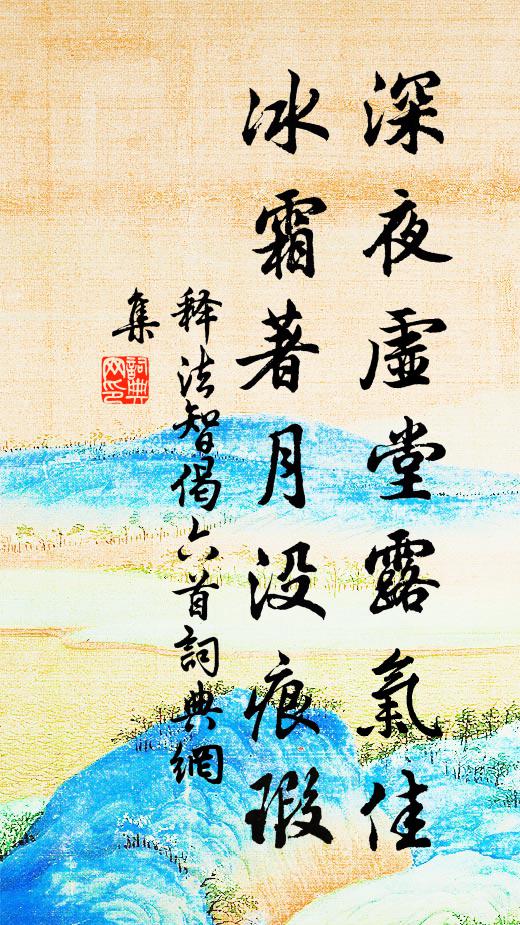 深夜虛堂露氣佳
冰霜著月没痕瑕
释法智偈六首詞典網
集
詞典網印